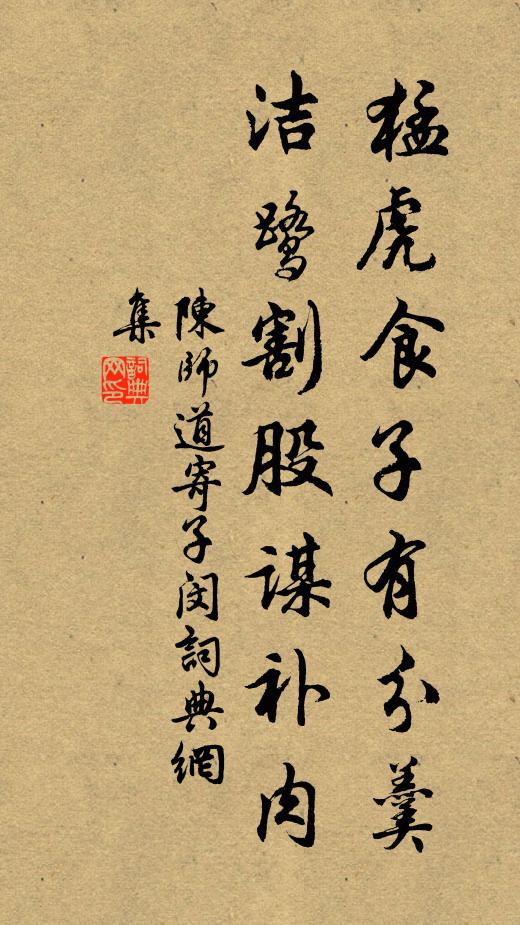 猛虎食子有分羹
洁鹭割股谋补肉
陳師道寄子閔詞典網
集
詞典網印